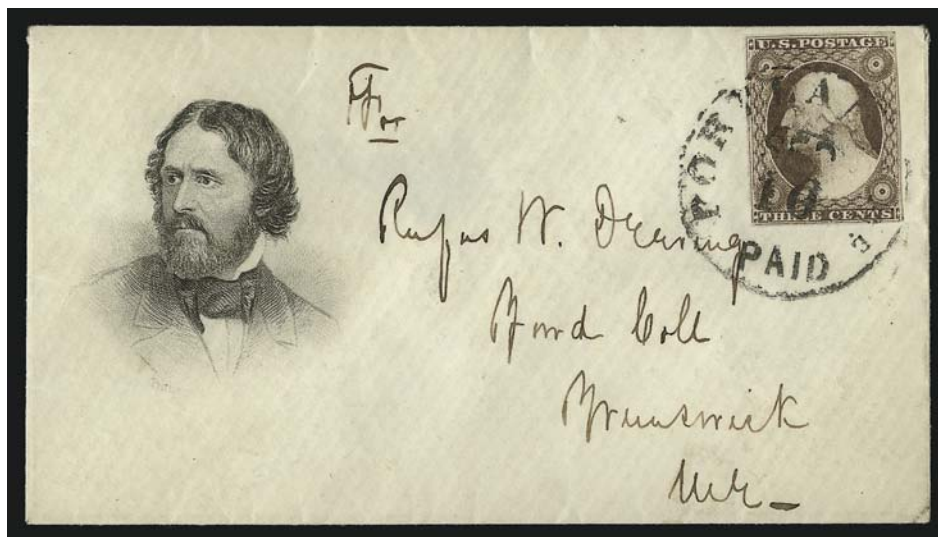 U.S. POSTAGE
THREE CENTS
PAID
10
For
Rufus W. Deering
Bowd Coll
Brunswick
Me